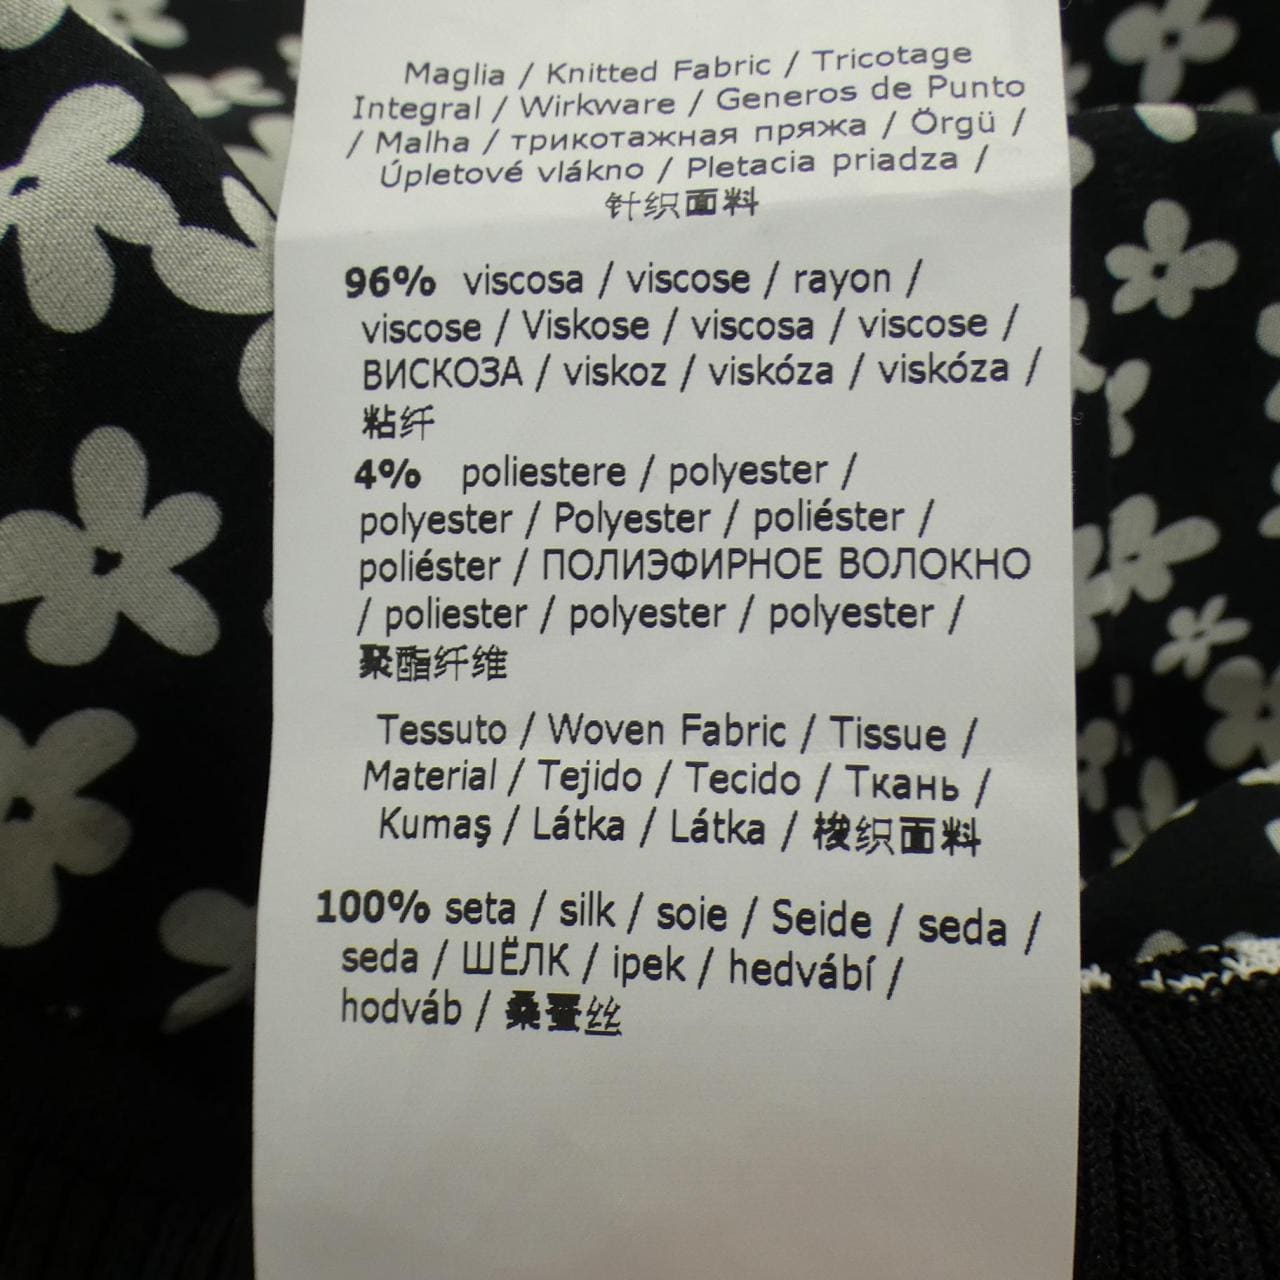 Maglia / Knitted Fabric / Tricotage
Integral / Wirkware / Generos de Punto
/ Malha / трикотажная пряжа / Örgü /
Úpletové vlákno / Pletacia priadza /
针织面料
96% viscosa / viscose / rayon /
viscose / Viskose / viscosa / viscose /
ВИСКОЗА / viskoz / viskóza / viskóza /
粘纤
4% poliestere / polyester /
polyester / Polyester / poliéster /
poliéster / ПОЛИЭФИРНОЕ ВОЛОКНО
/ poliester / polyester / polyester /
聚酯纤维
Tessuto / Woven Fabric / Tissue /
Material / Tejido / Tecido / Ткань /
Kumaş / Látka / Látka / 梭织面料
100% seta / silk / soie / Seide / seda /
seda / ШЁЛК / ipek / hedvábí /
hodváb / 桑蚕丝